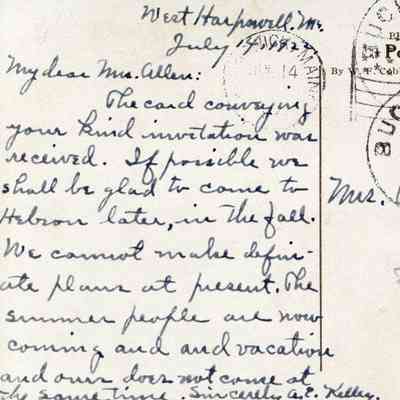 West Harpswell. Me.
July 14, 1922
My dear Mrs. Allen:
The card conveying
your kind invitation was
received. If possible we
shall be glad to come to
Hebron later, in the fall.
We cannot make defin-
ate plans at present. The
summer people are now
coming and and vacation
and ours does not come at
the same time. Sincerely A.E. Kelley.
14
MAINE
Po
By W.
Mrs.
BUC